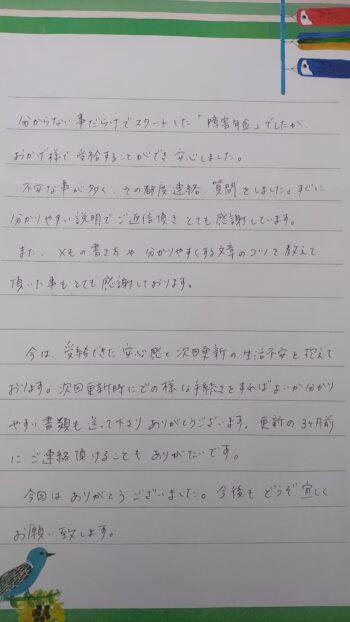 分からない事だらけでスタートした「障害年金」でしたが、
おかげ様で受給することができ安心しました。
不安な事が多く、その都度連絡、質問をしました。すぐに
分かりやすい説明でご返信頂きとても感謝しています。
また、メモの書き方や分かりやすくする文章のコツを教えて
頂いた事もとても感謝しております。
今は、受給できた安心感と次回更新の生活不安を抱えて
おります。次回更新時にどの様な手続きをすればよいか分かり
やすい書類も送って下さりありがとうございます。更新の3ヶ月前
にご連絡頂けることもありがたいです。
今回はありがとうございました。今後もどうぞ宜しく
お願い致します。